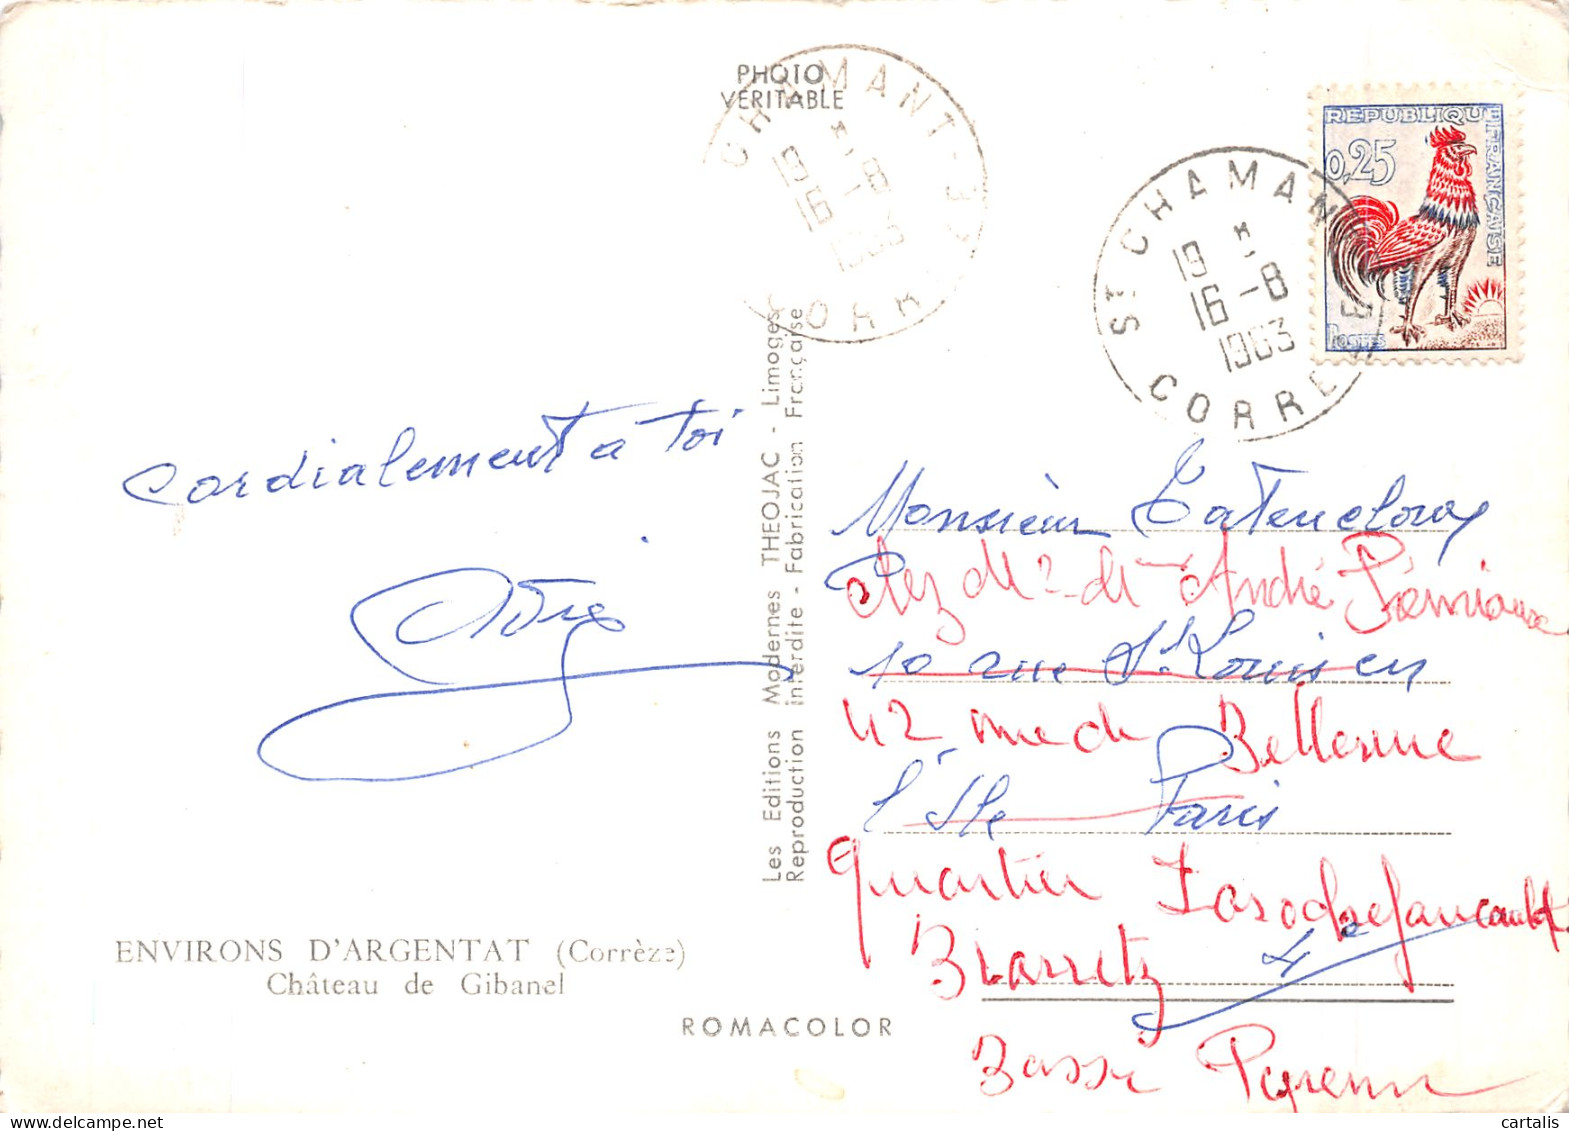 PHOTO
VERITABLE
CHAMANT
19
16 -8
1963
CORR
ST CHAMAN
19
16 -8
1963
CORRE
REPUBLIQUE
FRANÇAISE
0,25
POSTES
cordialement a toi
Les Editions Modernes THEOJAC - Limoges
Reproduction interdite - Fabrication Française
Monsieur
chez Mr et Mme André
10 rue St Louis en
42 rue de Bellevue
l'Isle Paris
quartier Larochefoucauld
4e
Biarritz
Basses Pyrénées
ENVIRONS D'ARGENTAT (Corrèze)
Château de Gibanel
ROMACOLOR
cartalis
www.delcampe.net